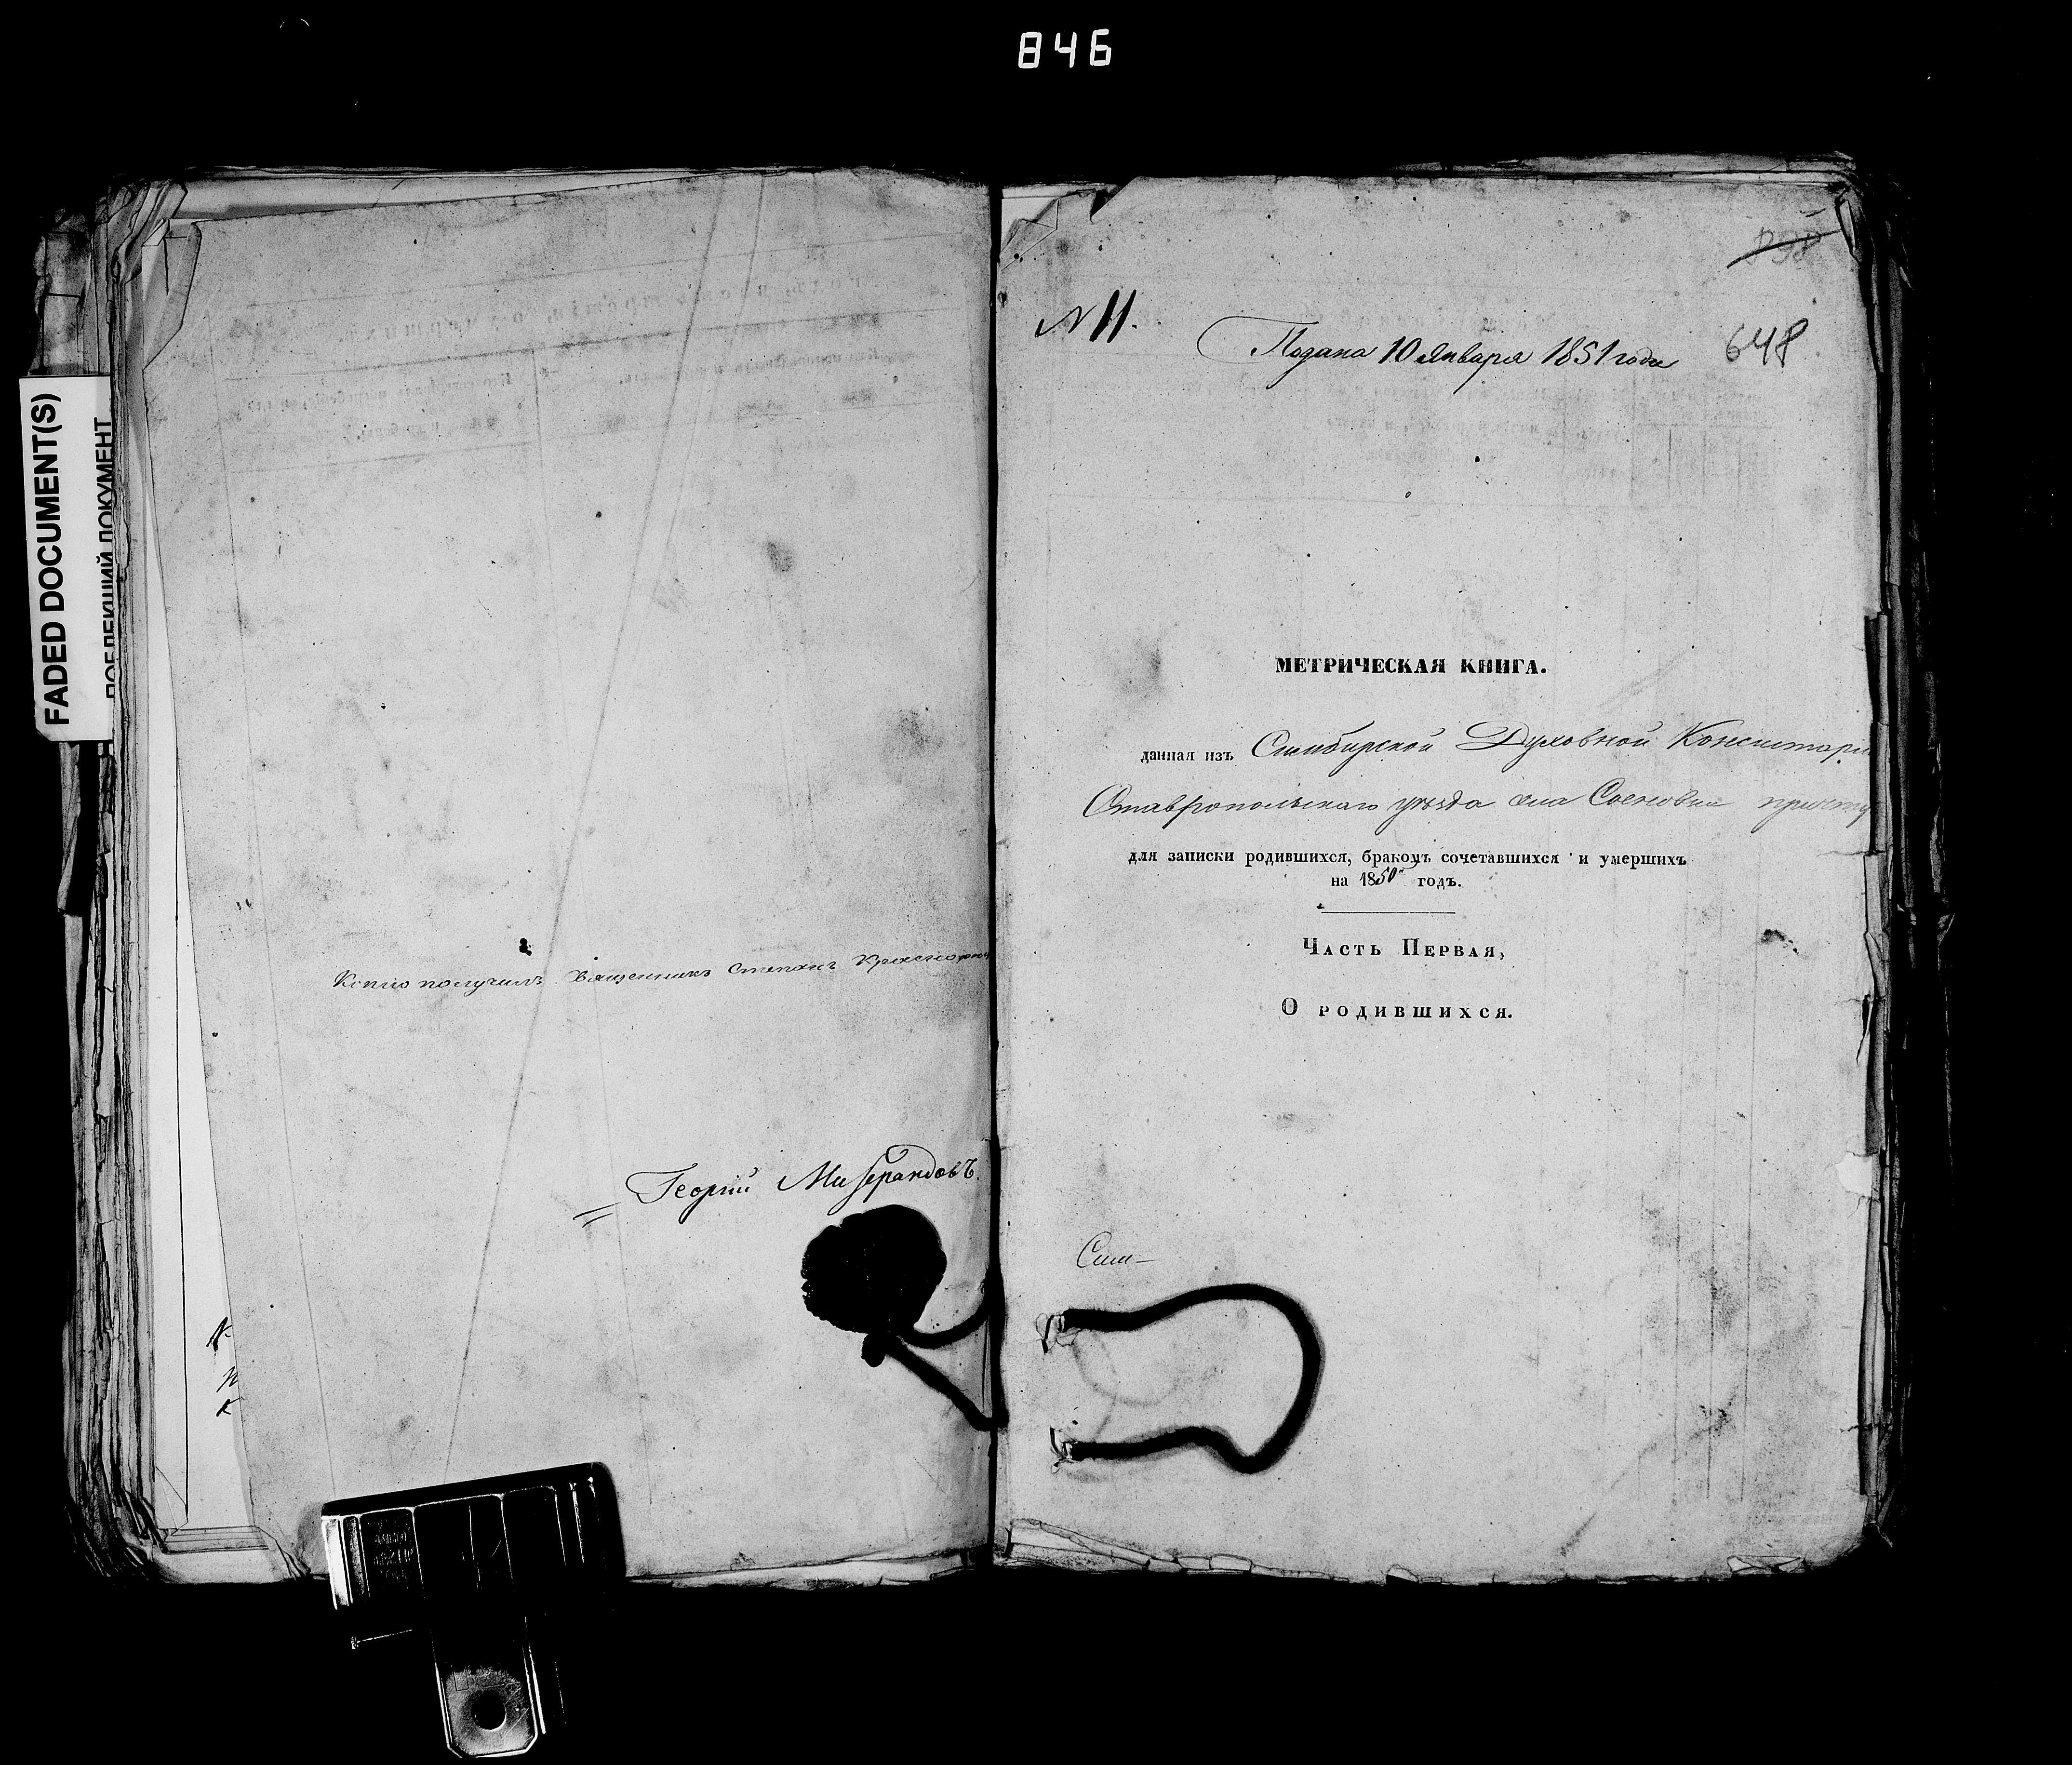 846
FADED DOCUMENT(S)
ПОБЛЕКШИЙ ДОКУМЕНТ
Копію получилъ Священникъ Степанъ
Георгій
N 11.
Подана 10 Января 1851 года
648
МЕТРИЧЕСКАЯ КНИГА.
данная изъ Симбирской Духовной Консисторіи
Ставропольскаго уѣзда села Сосновки причту
для записки родившихся, бракомъ сочетавшихся и умершихъ
на 1850й годъ.
Часть Первая,
О родившихся.
Сим-